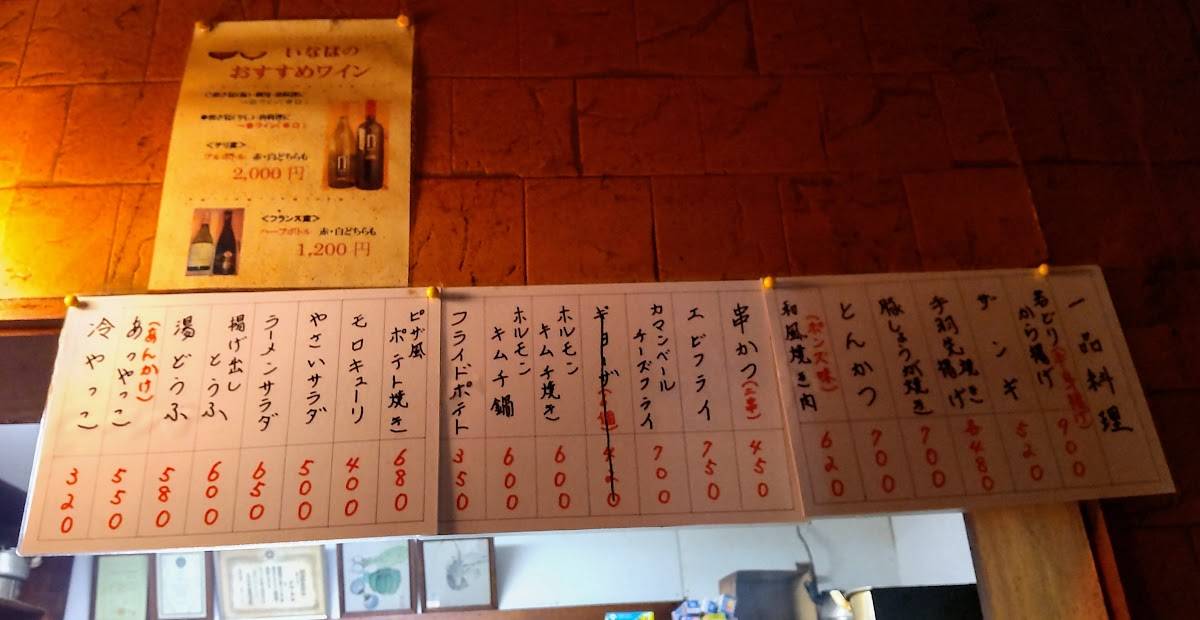 いなばの
おすすめワイン
<チリ産>
フルボトル 赤・白どちらも
2,000円
<フランス産>
ハーフボトル 赤・白どちらも
1,200円
一品料理
若どり
から揚げ
900
ザンギ
520
手羽先焼き
揚げ
各480
豚しょうが焼き
700
とんかつ
700
和風焼き肉
(ポンズ味)
620
串かつ(二串)
450
エビフライ
750
カマンベール
チーズフライ
700
ギョーザ
400
ホルモン
キムチ焼き
600
ホルモン
キムチ鍋
600
フライドポテト
350
ピザ風
ポテト焼き
680
モロキューリ
400
やさいサラダ
500
ラーメンサラダ
650
揚げ出し
とうふ
600
湯どうふ
580
(あんかけ)
あっやっこ
550
冷やっこ
320